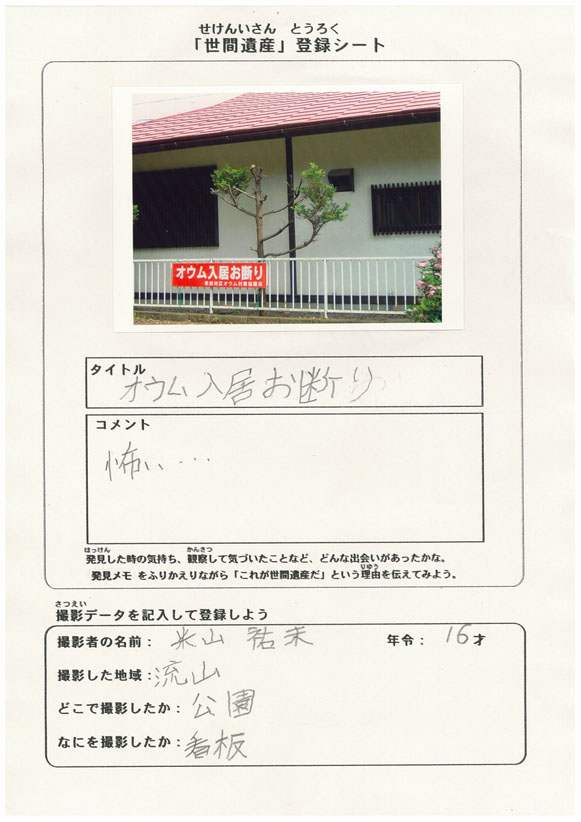 せけんいさん とうろく
「世間遺産」登録シート
オウム入居お断り
タイトル
オウム入居お断り
コメント
怖い…
はっけん かんさつ
発見した時の気持ち、観察して気づいたことなど、どんな出会いがあったかな。
りゆう
発見メモ をふりかえりながら「これが世間遺産だ」という理由を伝えてみよう。
さつえい
撮影データを記入して登録しよう
撮影者の名前: 米山 祐未 年令: 16才
撮影した地域: 流山
どこで撮影したか: 公園
なにを撮影したか: 看板